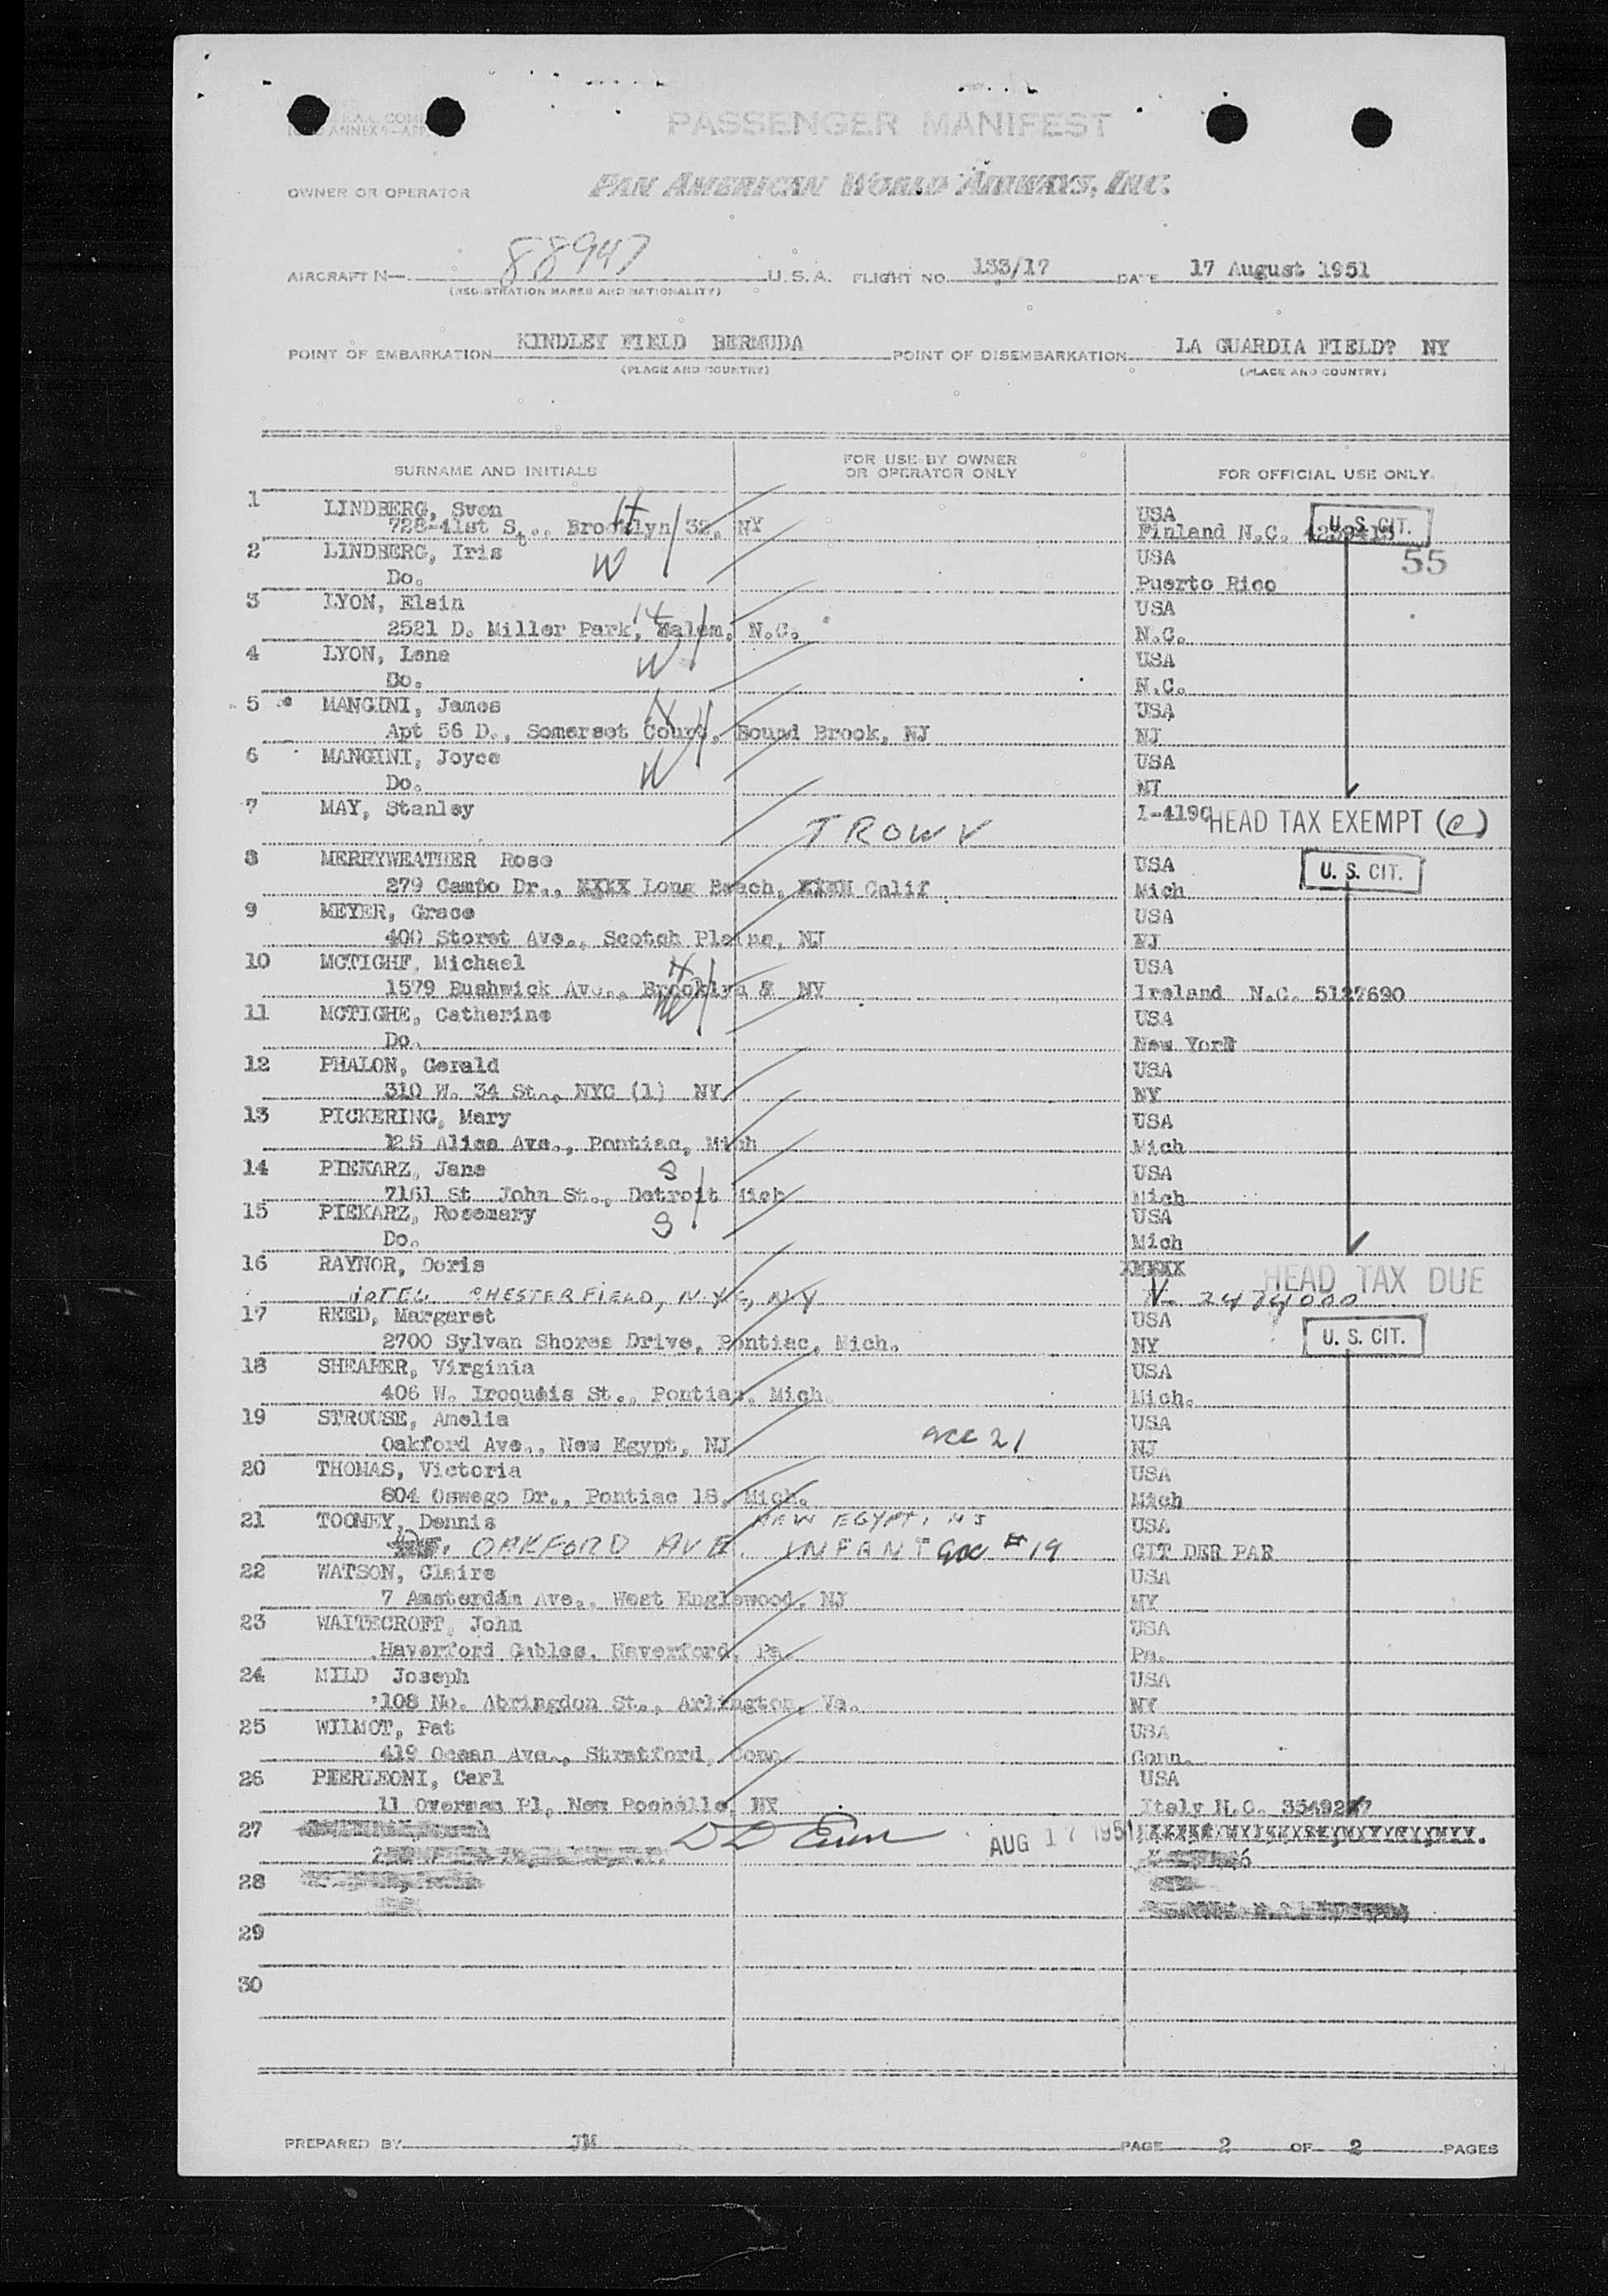 PASSENGER MANIFEST
PAN AMERICAN WORLD AIRWAYS, INC.
OWNER OR OPERATOR
AIRCRAFT N— 88947 U.S.A. FLIGHT NO. 133/17 DATE 17 August 1951
(REGISTRATION MARKS AND NATIONALITY)
POINT OF EMBARKATION KINDLEY FIELD BERMUDA POINT OF DISEMBARKATION LA GUARDIA FIELD? NY
(PLACE AND COUNTRY) (PLACE AND COUNTRY)
SURNAME AND INITIALS FOR USE BY OWNER OR OPERATOR ONLY FOR OFFICIAL USE ONLY
1 LINDBERG, Sven H USA U. S. CIT.
728-41st St., Brooklyn 32, NY Finland N.C.
2 LINDBERG, Iris W USA 55
Do. Puerto Rico
3 LYON, Elain H USA
2521 D. Miller Park, Salem, N.C. N.C.
4 LYON, Lena W USA
Do. N.C.
5 MANGINI, James H USA
Apt 56 D., Somerset Court, Bound Brook, NJ NJ
6 MANGINI, Joyce W USA
Do. NJ
7 MAY, Stanley I-419C HEAD TAX EXEMPT (e)
TROWV
8 MERRYWEATHER Rose USA U. S. CIT.
279 Campo Dr., XXXX Long Beach, Calif Mich
9 MEYER, Grace USA
400 Storet Ave., Scotch Plains, NJ NJ
10 MCTIGHE, Michael H USA
1579 Bushwick Ave., Brooklyn NY Ireland N.C. 5127690
11 MCTIGHE, Catherine W USA
Do. New York
12 PHALON, Gerald USA
310 W. 34 St., NYC (1) NY NY
13 PICKERING, Mary USA
125 Alice Ave., Pontiac, Mich Mich
14 PIEKARZ, Jane S USA
7161 St John St., Detroit Mich Mich
15 PIEKARZ, Rosemary S USA
Do. Mich
16 RAYNOR, Doris XXXXX HEAD TAX DUE
HOTEL CHESTERFIELD, N.Y., NY V. 2474000
17 REED, Margaret USA U. S. CIT.
2700 Sylvan Shores Drive, Pontiac, Mich. NY
18 SHEARER, Virginia USA
406 W. Iroquois St., Pontiac, Mich. Mich.
19 STROUSE, Amelia USA
Oakford Ave., New Egypt, NJ acc 21 NJ
20 THOMAS, Victoria USA
804 Oswego Dr., Pontiac 18, Mich. Mich
21 TOOMEY, Dennis NEW EGYPT, NJ USA
OAKFORD AVE. INFANT acc #19 CIT DER PAR
22 WATSON, Claire USA
7 Amsterdam Ave., West Englewood, NJ NY
23 WAITECROFT, John USA
Haverford Gables, Haverford, Pa. Pa.
24 MILD Joseph USA
108 No. Abringdon St., Arlington, Va. NY
25 WILMOT, Pat USA
419 Ocean Ave., Stratford, Conn Conn.
26 PIERLEONI, Carl USA
11 Overman Pl, New Rochelle, NY Italy N.C.
27 AUG 17 1951
28
29
30
PREPARED BY JM PAGE 2 OF 2 PAGES